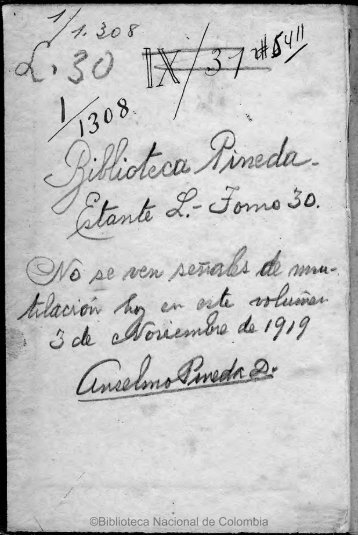 1/1.308
L. 30
IX/31 #5411
1/1308
Biblioteca Pineda.-
Estante L.- Tomo 30.
No se ven señales de mu-
tilación hoy en este volumen
3 de Noviembre de 1919
Anselmo Pineda D.
©Biblioteca Nacional de Colombia